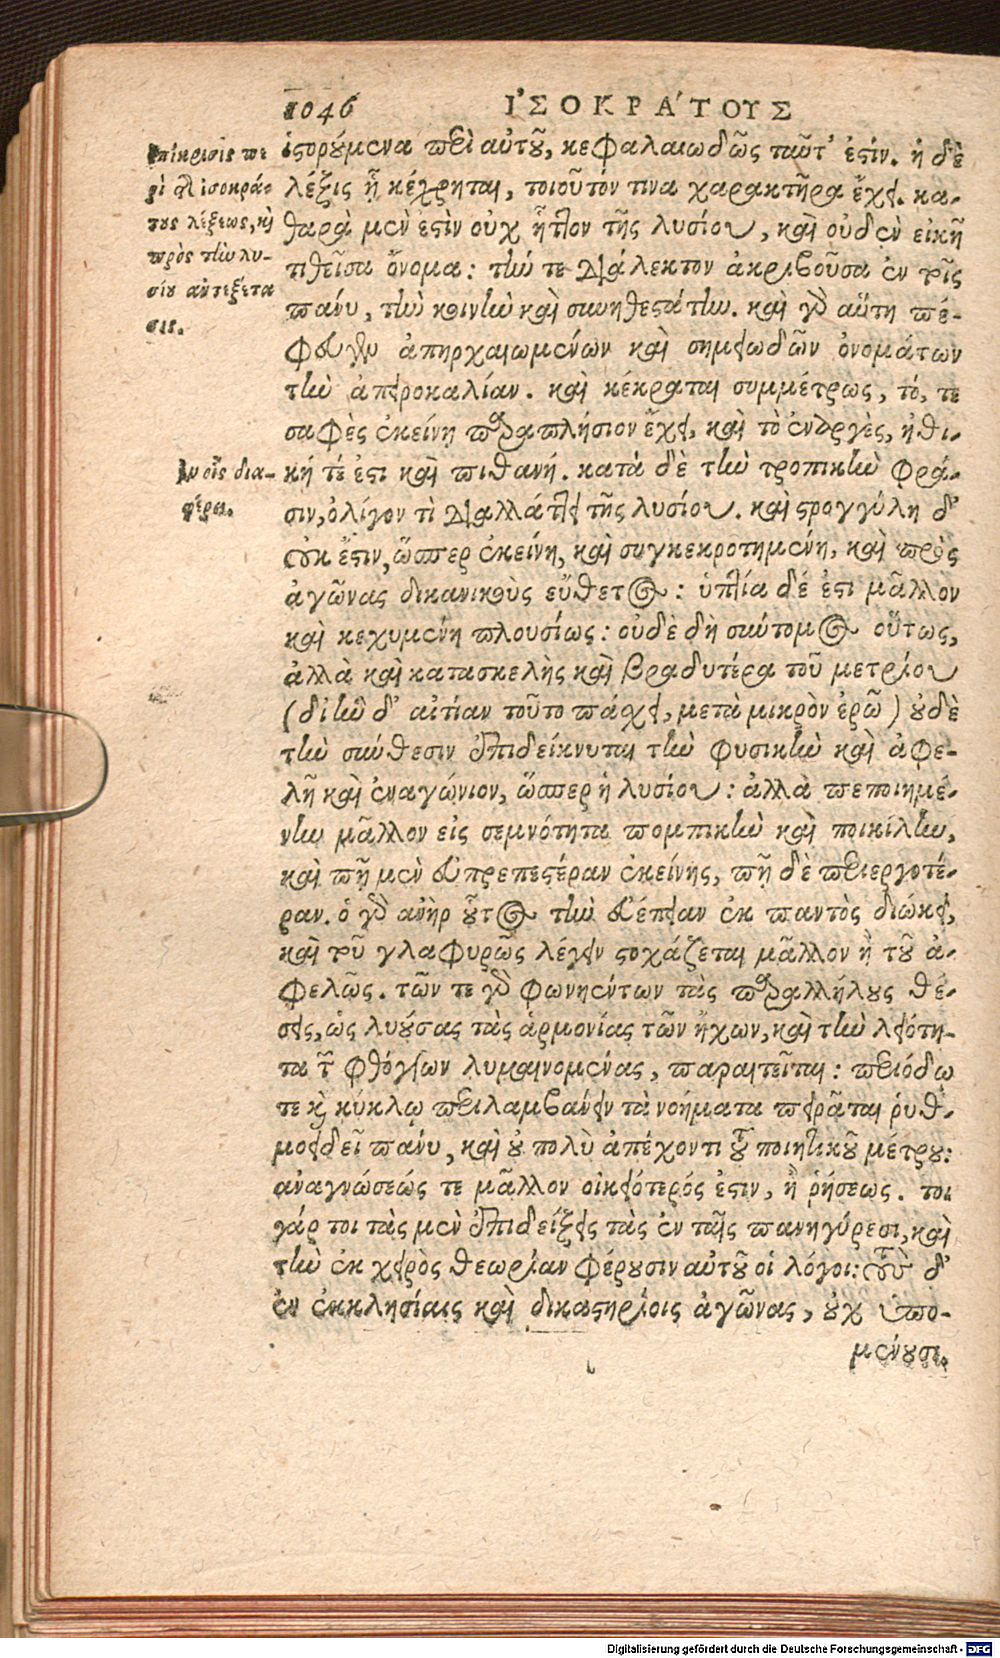 1046 ἸΣΟΚΡΆΤΟΥΣ
ἱστορούμενα περὶ αὐτοῦ, κεφαλαιωδῶς ταῦτ' ἐστίν. ἡ δὲ
λέξις ᾗ κέχρηται, τοιοῦτόν τινα χαρακτῆρα ἔχει. κα-
θαρὰ μὲν ἐστὶν οὐχ ἧττον τῆς λυσίου, καὶ οὐδὲν εἰκῆ
τιθεῖσα ὄνομα: τήν τε διάλεκτον ἀκριβοῦσα ἐν τοῖς
πάνυ, τὴν κοινὴν καὶ συνηθεστάτην. καὶ γὰρ αὕτη πέ-
φευγεν ἀπηρχαιωμένων καὶ σημειωδῶν ὀνομάτων
τὴν ἀπειροκαλίαν. καὶ κέκραται συμμέτρως, τό, τε
σαφὲς ἐκείνῃ παραπλήσιον ἔχει, καὶ τὸ ἐναργὲς, ἠθι-
κή τέ ἐστι καὶ πιθανή. κατὰ δὲ τὴν τροπικὴν φρά-
σιν, ὀλίγον τὶ διαλλάττει τῆς λυσίου. καὶ στρογγύλη δ'
οὐκ ἔστιν, ὥσπερ ἐκείνη, καὶ συγκεκροτημένη, καὶ πρὸς
ἀγῶνας δικανικοὺς εὔθετος: ὑπτία δέ ἐστι μᾶλλον
καὶ κεχυμένη πλουσίως: οὐδὲ δὴ σύντομος οὕτως,
ἀλλὰ καὶ κατασκελὴς καὶ βραδυτέρα τοῦ μετρίου
(δι' ἣν δ' αἰτίαν τοῦτο πάσχει, μετὰ μικρὸν ἐρῶ) οὐδὲ
τὴν σύνθεσιν ἐπιδείκνυται τὴν φυσικὴν καὶ ἀφε-
λῆ καὶ ἐναγώνιον, ὥσπερ ἡ λυσίου: ἀλλὰ πεποιημέ-
νην μᾶλλον εἰς σεμνότητα πομπικὴν καὶ ποικίλην,
καὶ πῇ μὲν εὐπρεπεστέραν ἐκείνης, πῇ δὲ περιεργοτέ-
ραν. ὁ γὰρ ἀνὴρ οὗτος τὴν εὐέπειαν ἐκ παντὸς διώκει,
καὶ τοῦ γλαφυρῶς λέγειν στοχάζεται μᾶλλον ἢ τοῦ ἀ-
φελῶς. τῶν τε γὰρ φωνηέντων τὰς παραλλήλους θέ-
σεις, ὡς λυούσας τὰς ἁρμονίας τῶν ἤχων, καὶ τὴν λειότη-
τα τῶν φθόγγων λυμαινομένας, παραιτεῖται: περιόδῳ
τε καὶ κύκλῳ περιλαμβάνειν τὰ νοήματα πειρᾶται ῥυθ-
μοειδεῖ πάνυ, καὶ οὐ πολὺ ἀπέχοντι τοῦ ποιητικοῦ μέτρου:
ἀναγνώσεώς τε μᾶλλον οἰκειότερός ἐστιν, ἢ ῥήσεως. τοι
γάρ τοι τὰς μὲν ἐπιδείξεις τὰς ἐν ταῖς πανηγύρεσι, καὶ
τὴν ἐκ χειρὸς θεωρίαν φέρουσιν αὐτοῦ οἱ λόγοι: τοὺς δ'
ἐν ἐκκλησίαις καὶ δικαστηρίοις ἀγῶνας, οὐχ ὑπο-
μένουσι.
ἐπίκρισις πε
ρὶ τῆς ἰσοκρά-
τους λέξεως, καὶ
πρὸς τὴν λυ-
σίου ἀντεξέτα
σις.
ἐν οἷς δια-
φέρει.
Digitalisierung gefördert durch die Deutsche Forschungsgemeinschaft - DFG